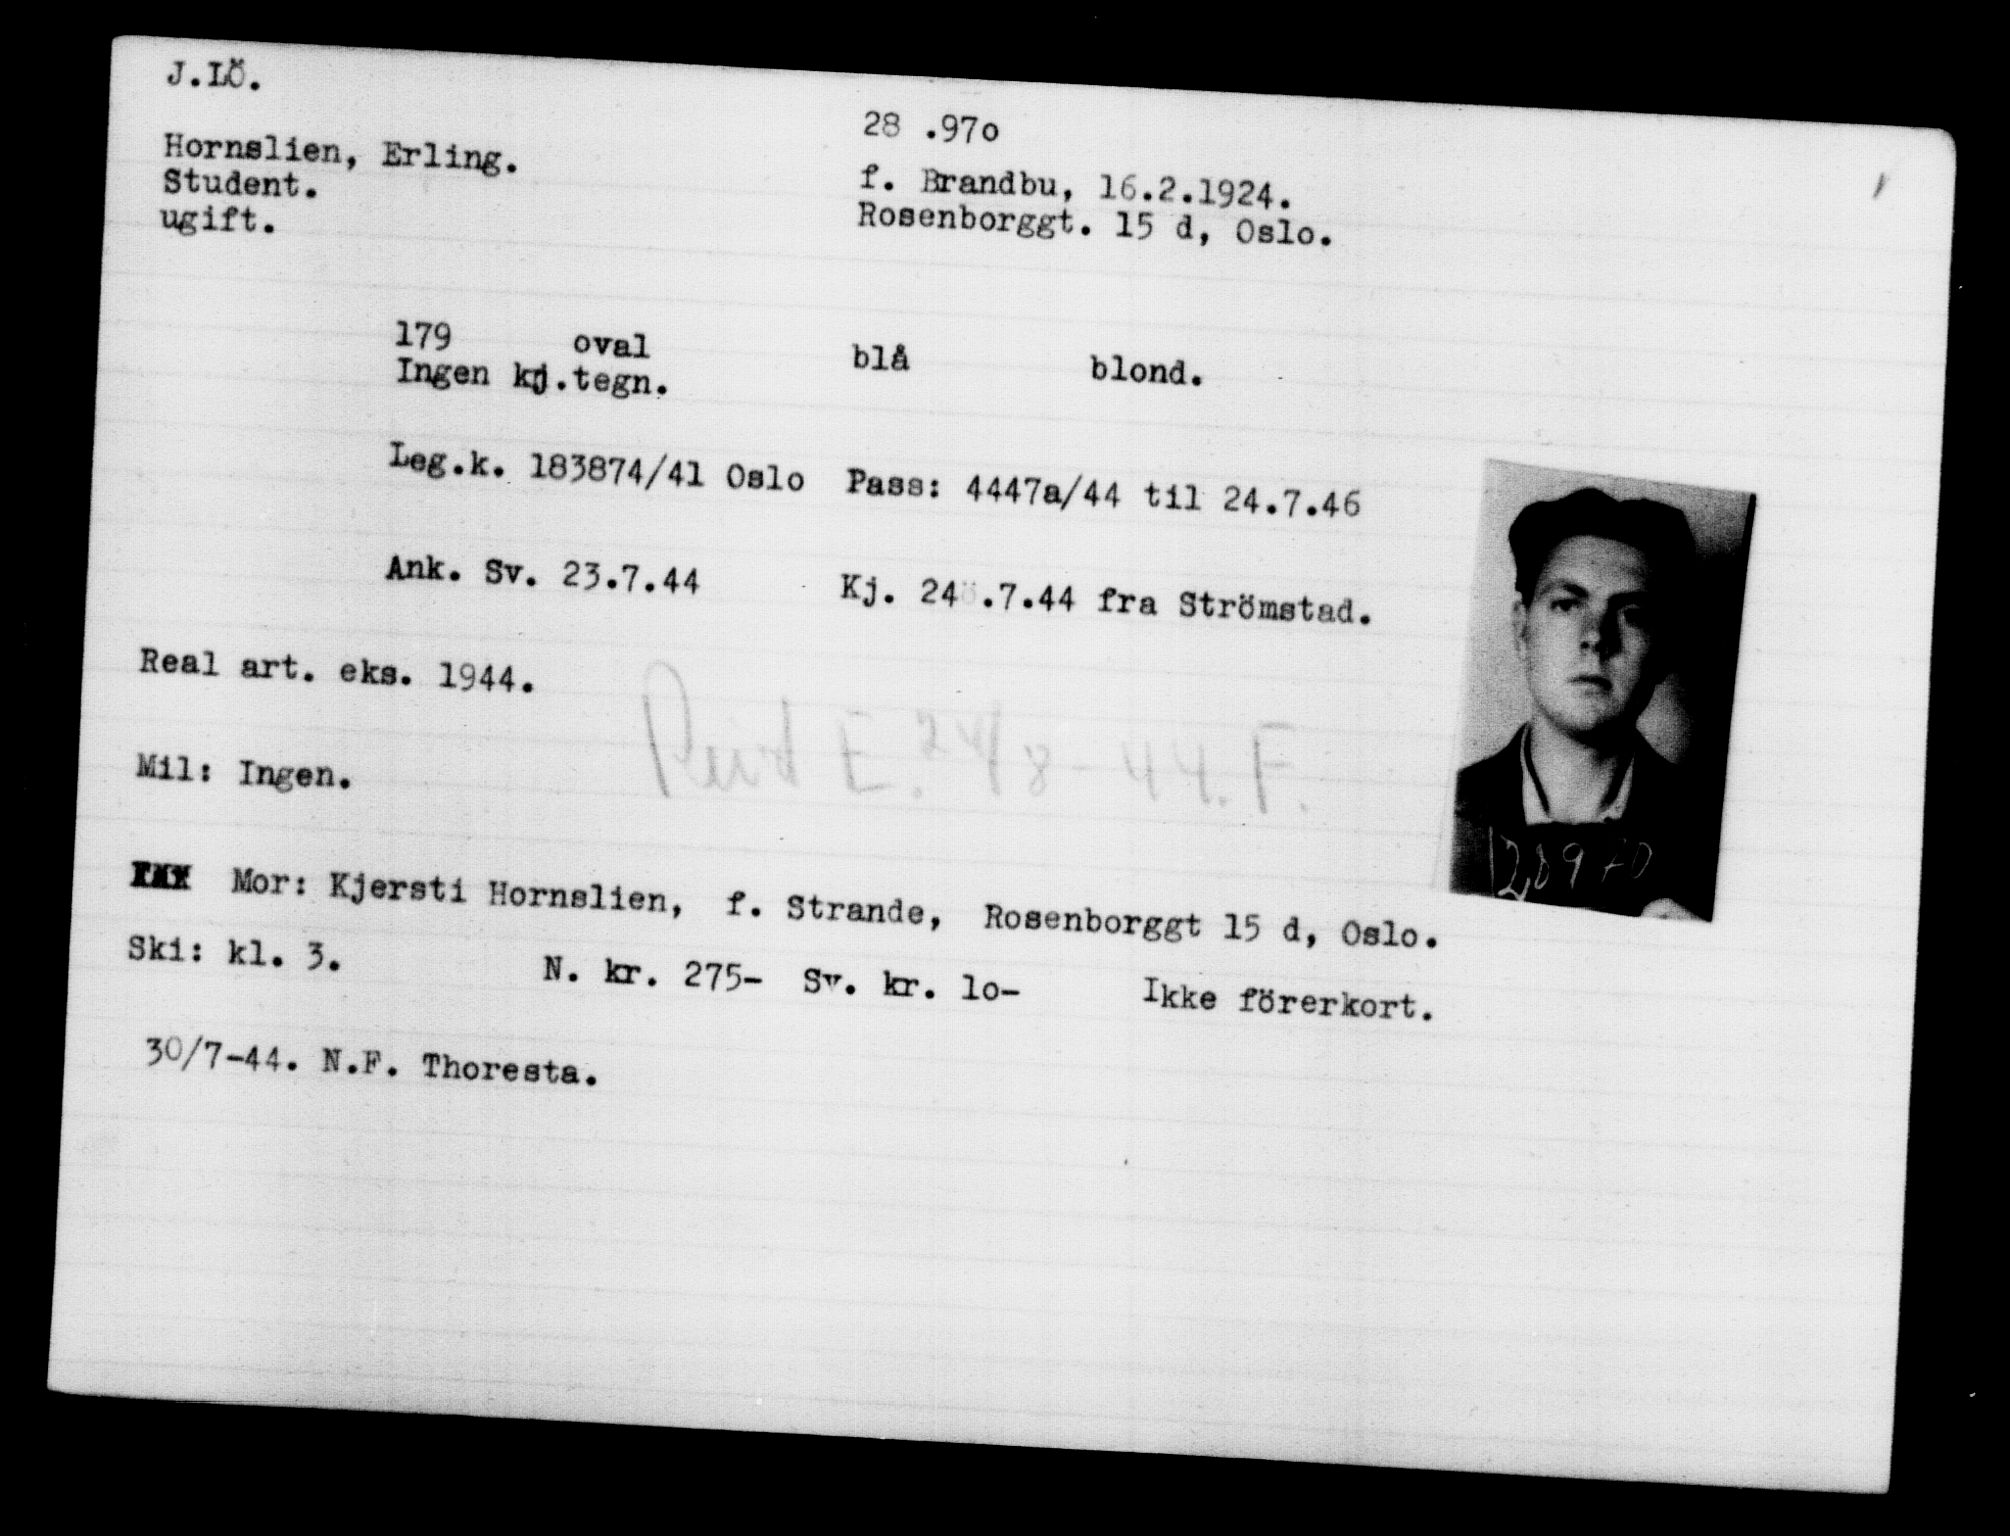 J.LÖ.
28 .97o
Hornslien, Erling.
f. Brandbu, 16.2.1924.
Student.
Rosenborggt. 15 d, Oslo.
ugift.
179 oval blå blond.
Ingen kj.tegn.
Leg.k. 183874/41 Oslo Pass: 4447a/44 til 24.7.46
Ank. Sv. 23.7.44 Kj. 24 .7.44 fra Strömstad.
Real art. eks. 1944.
E. 24/8-44. F.
Mil: Ingen.
28970
Mor: Kjersti Hornslien, f. Strande, Rosenborggt 15 d, Oslo.
Ski: kl. 3. N. kr. 275- Sv. kr. lo- Ikke förerkort.
30/7-44. N.F. Thoresta.